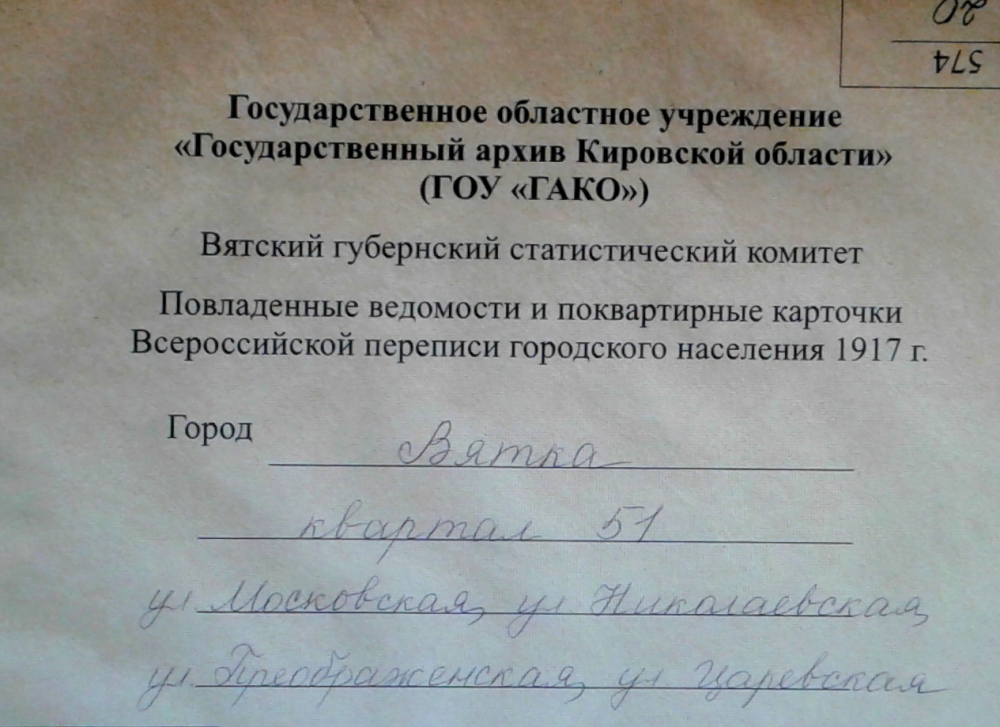 20
574
Государственное областное учреждение
«Государственный архив Кировской области»
(ГОУ «ГАКО»)
Вятский губернский статистический комитет
Повладенные ведомости и поквартирные карточки
Всероссийской переписи городского населения 1917 г.
Город Вятка
квартал 51
ул Московская, ул Николаевская,
ул. Преображенская, ул Царевская